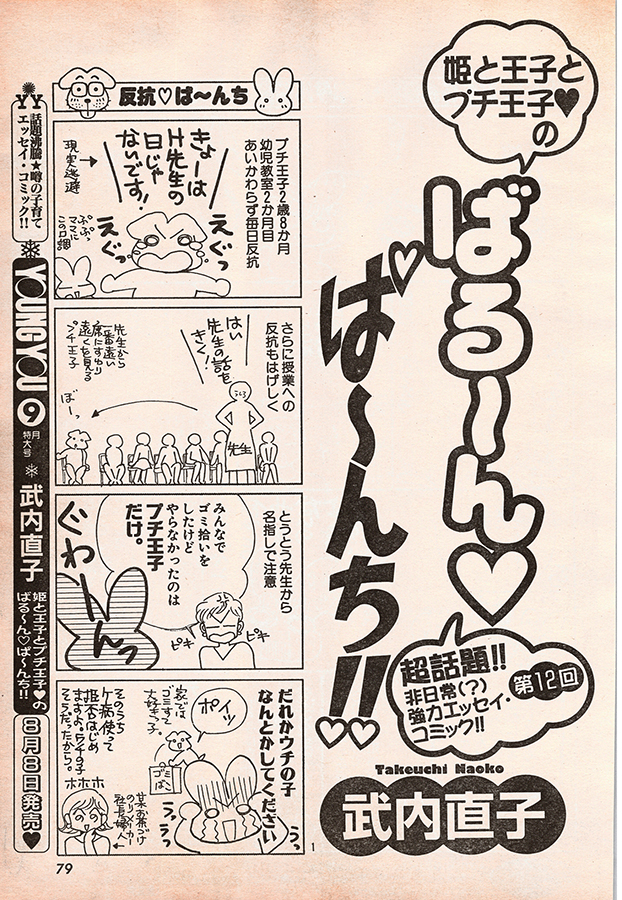 姫と王子と
プチ王子♥
の
ばる〜ん♡
ぱ〜んち!!
超話題!!
非日常(?)
強力エッセイ・
コミック!!
第12回
Takeuchi Naoko
武内直子
反抗♡ぱ〜んち
プチ王子2歳8か月
幼児教室2か月目
あいかわらず毎日反抗
きょーは
H先生の
日じゃ
ないです!
えぐっ
えぐっ
現実逃避
ぷぷっ
ママに
この口調
さらに授業への
反抗もはげしく
はい
先生の話を
きく!
先生
先生から
一番遠い
席にすわり
遠くを見る
プチ王子
ぼーっ
とうとう先生から
名指しで注意
みんなで
ゴミ拾いを
したけど
やらなかったのは
プチ王子
だけ。
ピキ
ピキ
ぐわーんっ
だれかウチの子
なんとかしてください
うっ
うっうっ
ポイッ
家では
ゴミすて
大好きっ子。
ゴミばこ
そのうち
ケ病使って
姫否はじめ
ますよ。ワチの子
そうだったから。
ホホホ
某お茶づけ
のりメーカー
社長婦人
1
YY
話題沸騰★噂の子育て
エッセイ・コミック!!
YOUNG YOU
9月
特大号
武内直子
姫と王子とプチ王子♥の
ばる〜ん♡ぱ〜んち!!
8月8日発売♥
79